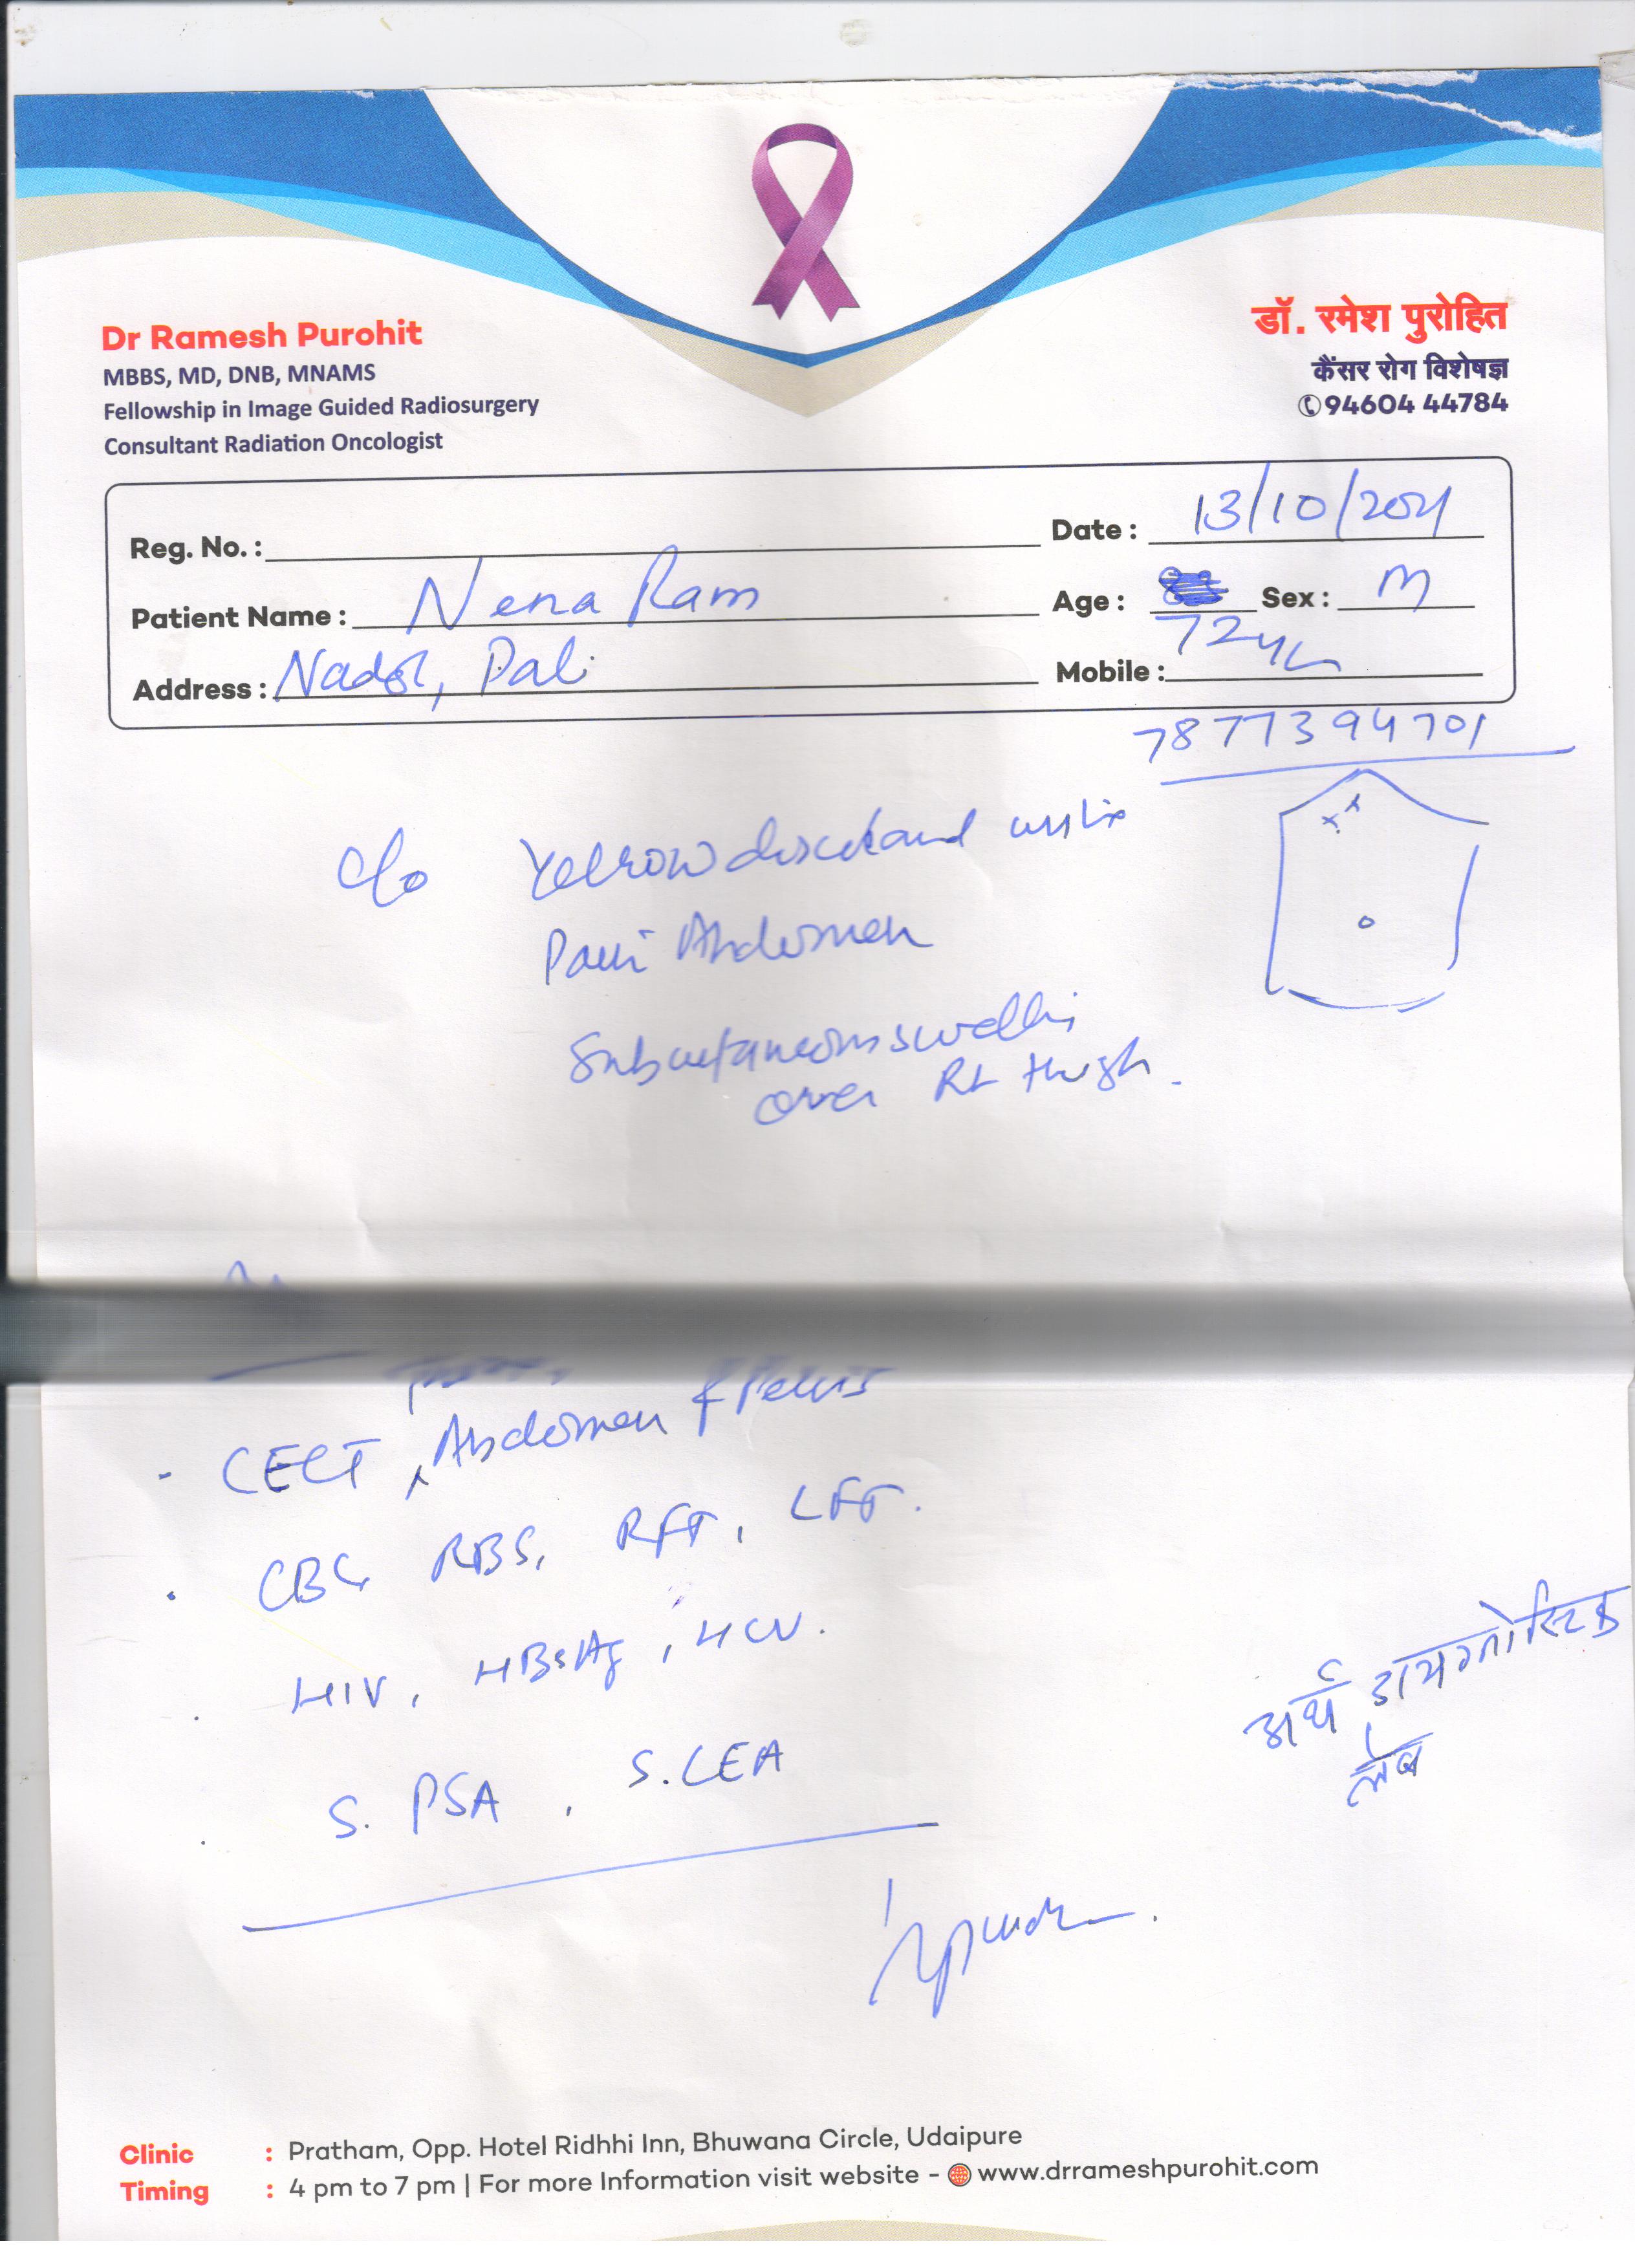 Dr Ramesh Purohit
MBBS, MD, DNB, MNAMS
Fellowship in Image Guided Radiosurgery
Consultant Radiation Oncologist
डॉ. रमेश पुरोहित
कैंसर रोग विशेषज्ञ
94604 44784
Reg. No. :
Date : 13/10/2021
Patient Name : Nena Ram
Age : 72 yr Sex : M
Address : Nadol, Pali
Mobile :
7877394701
c/o Yellow
Pain Abdomen
Subcutaneous swelling
over Rt thigh.
- CECT Abdomen & Pelvis
. CBC, RBS, RFT, LFT.
. HIV, HBsAg, HCV.
. S. PSA, S. CEA
अर्थ डायग्नोस्टिक
लेब
Clinic : Pratham, Opp. Hotel Ridhhi Inn, Bhuwana Circle, Udaipure
Timing : 4 pm to 7 pm | For more Information visit website - www.drrameshpurohit.com